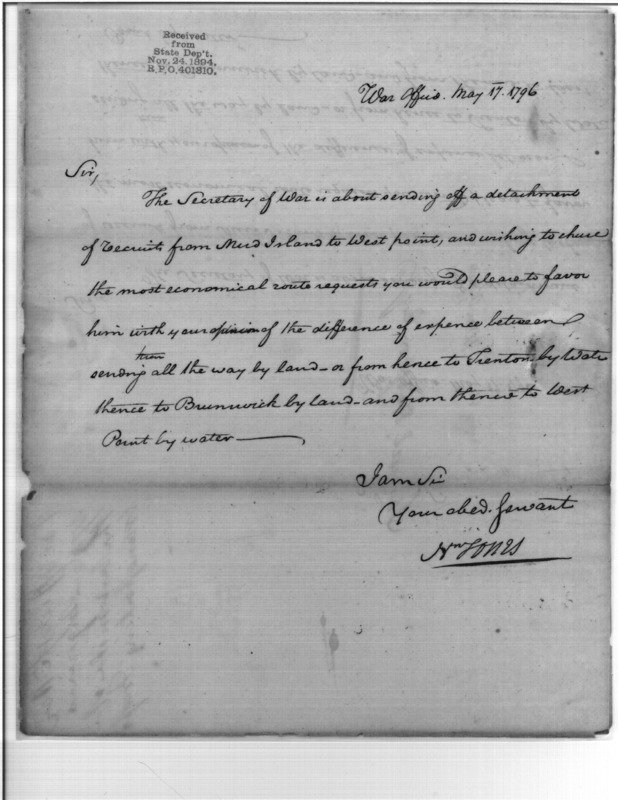 Received
from
State Dep't.
Nov. 24. 1894.
R.P.O. 401810.
War Office. May 17. 1796
Sir,
The Secretary of War is about sending off a detachment
of recruits from Mud Island to West point, and wishing to chuse
the most economical route requests you would please to favor
him with your opinion of the difference of expence between
them
sending all the way by land - or from hence to Trenton by Wate
thence to Brunswick by land - and from thence to West
Point by water
I am Sir
Your obed. Servant
Nw Jones